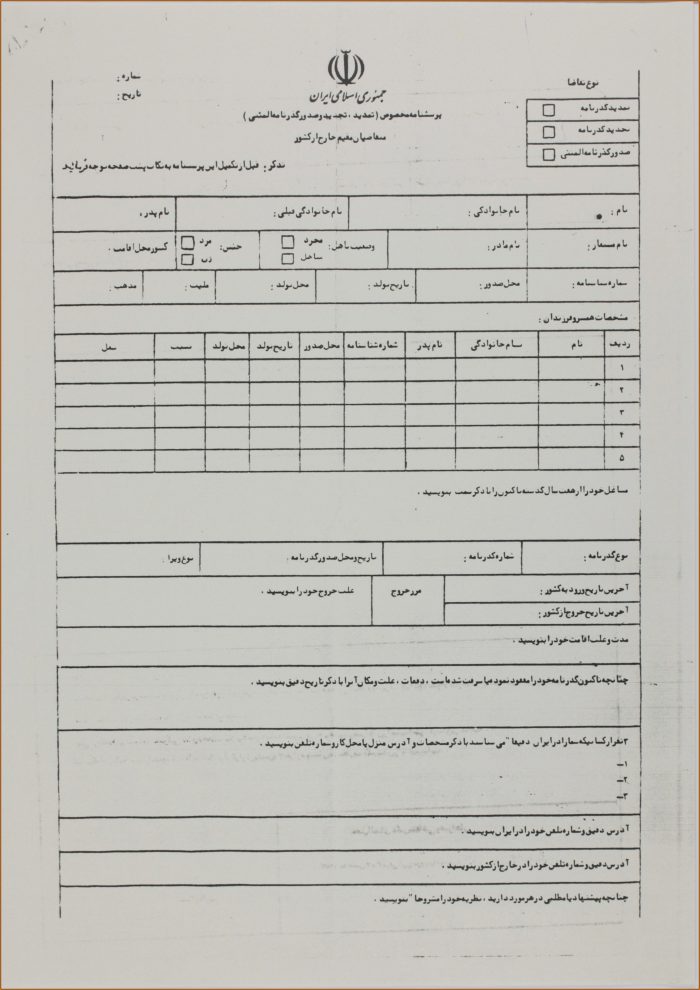 شماره :
تاریخ :
جمهوری اسلامی ایران
پرسشنامه مخصوص ( تمدید ، تجدید و صدور گذرنامه المثنی )
متقاضیان مقیم خارج از کشور
نوع تقاضا
تمدید گذرنامه
تجدید گذرنامه
صدور گذرنامه المثنی
تذکر : قبل از تکمیل این پرسشنامه به نکات پشت صفحه توجه فرمائید
نام : نام خانوادگی : نام خانوادگی قبلی : نام پدر :
نام مستعار : نام مادر : وضعیت تاهل : مجرد متاهل جنس : مرد زن کشور محل اقامت .
شماره شناسنامه : محل صدور : تاریخ تولد : محل تولد : ملیت : مذهب :
مشخصات همسر و فرزندان :
ردیف نام نام خانوادگی نام پدر شماره شناسنامه محل صدور تاریخ تولد محل تولد نسبت شغل
۱
۲
۳
۴
۵
مشاغل خود را از هفت سال گذشته تا کنون را با ذکر سمت بنویسید .
نوع گذرنامه : شماره گذرنامه : تاریخ و محل صدور گذرنامه . نوع ویزا :
آخرین تاریخ ورود به کشور : مرز خروج علت خروج خود را بنویسید .
آخرین تاریخ خروج از کشور :
مدت و علت اقامت خود را بنویسید .
چنانچه تا کنون گذرنامه خود را مفقود نموده یا سرقت شده است ، دفعات ، علت و مکان آنرا با ذکر تاریخ دقیق بنویسید .
۳ نفر از کسانیکه شما را در ایران دقیقا" می شناسند با ذکر مشخصات و آدرس منزل یا محل کار و شماره تلفن بنویسید .
۱–
۲–
۳–
آدرس دقیق و شماره تلفن خود را در ایران بنویسید .
آدرس دقیق و شماره تلفن خود را در خارج از کشور بنویسید .
چنانچه پیشنهاد یا مطلبی در هر مورد دارید ، نظریه خود را مشروحا" بنویسید .